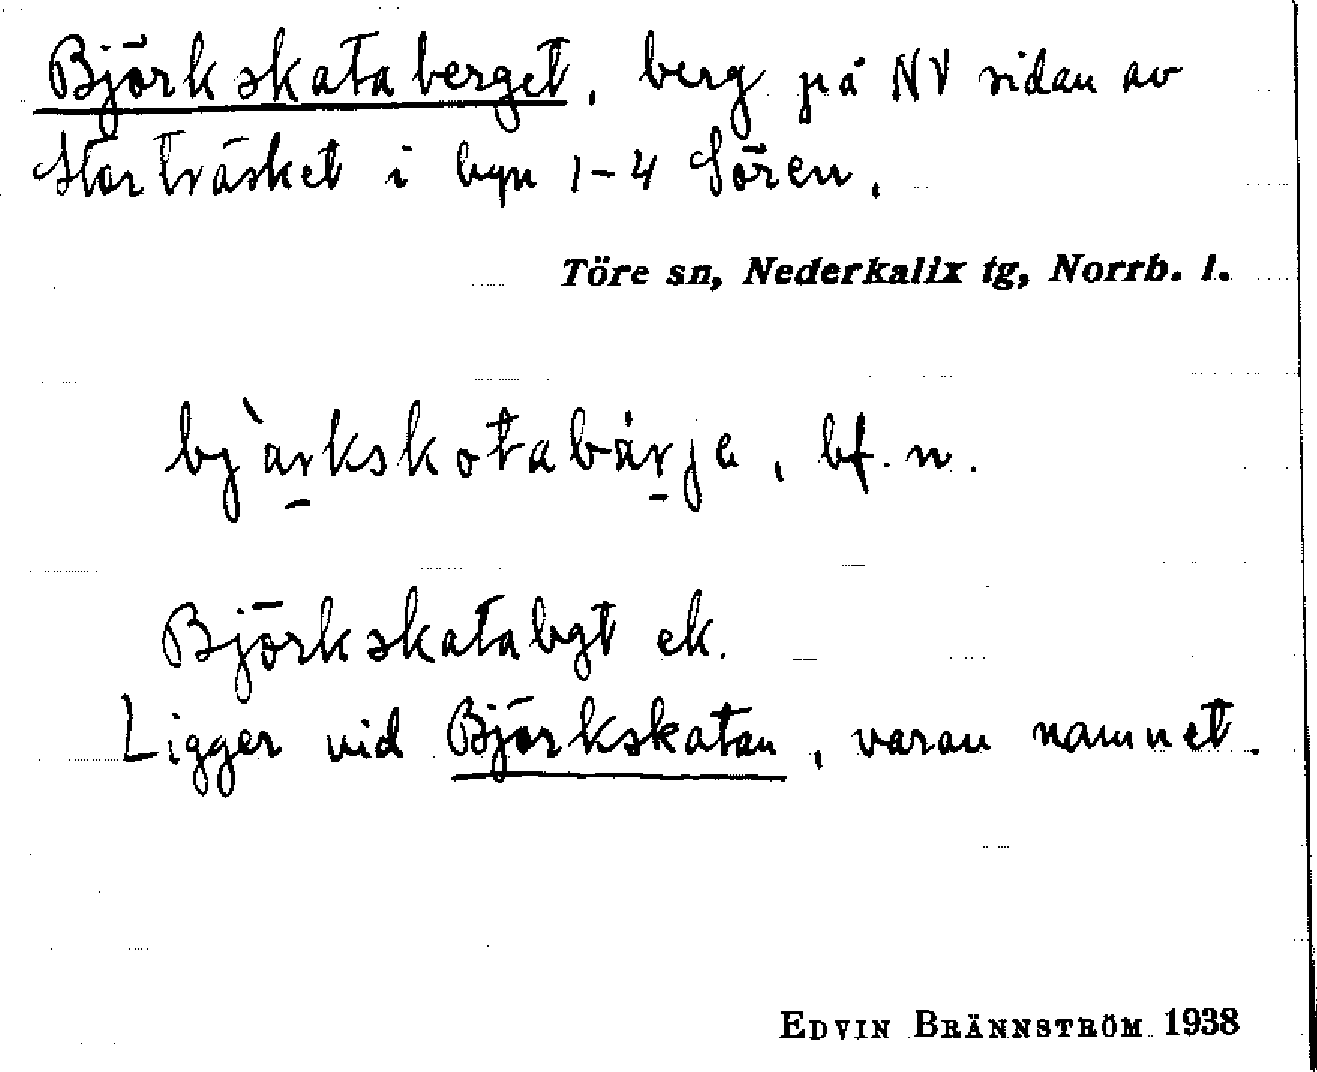 Björkskataberget, berg på NV sidan av
Storträsket i byn 1-4 Sören.
Töre sn, Nederkalix tg, Norrb. l.
bj̀ar̠kskotabär̠je, bf. n.
Björkskatabgt ek.
Ligger vid Björkskatan, varav namnet.
EDVIN BRÄNNSTRÖM 1938